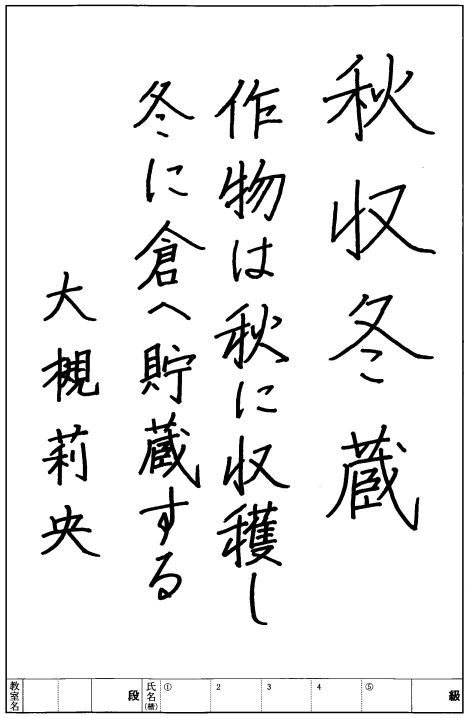 秋収冬蔵
作物は秋に収穫し
冬に倉へ貯蔵する
大槻莉央
教室名 段 氏名(積) ① 2 3 4 ⑤ 級